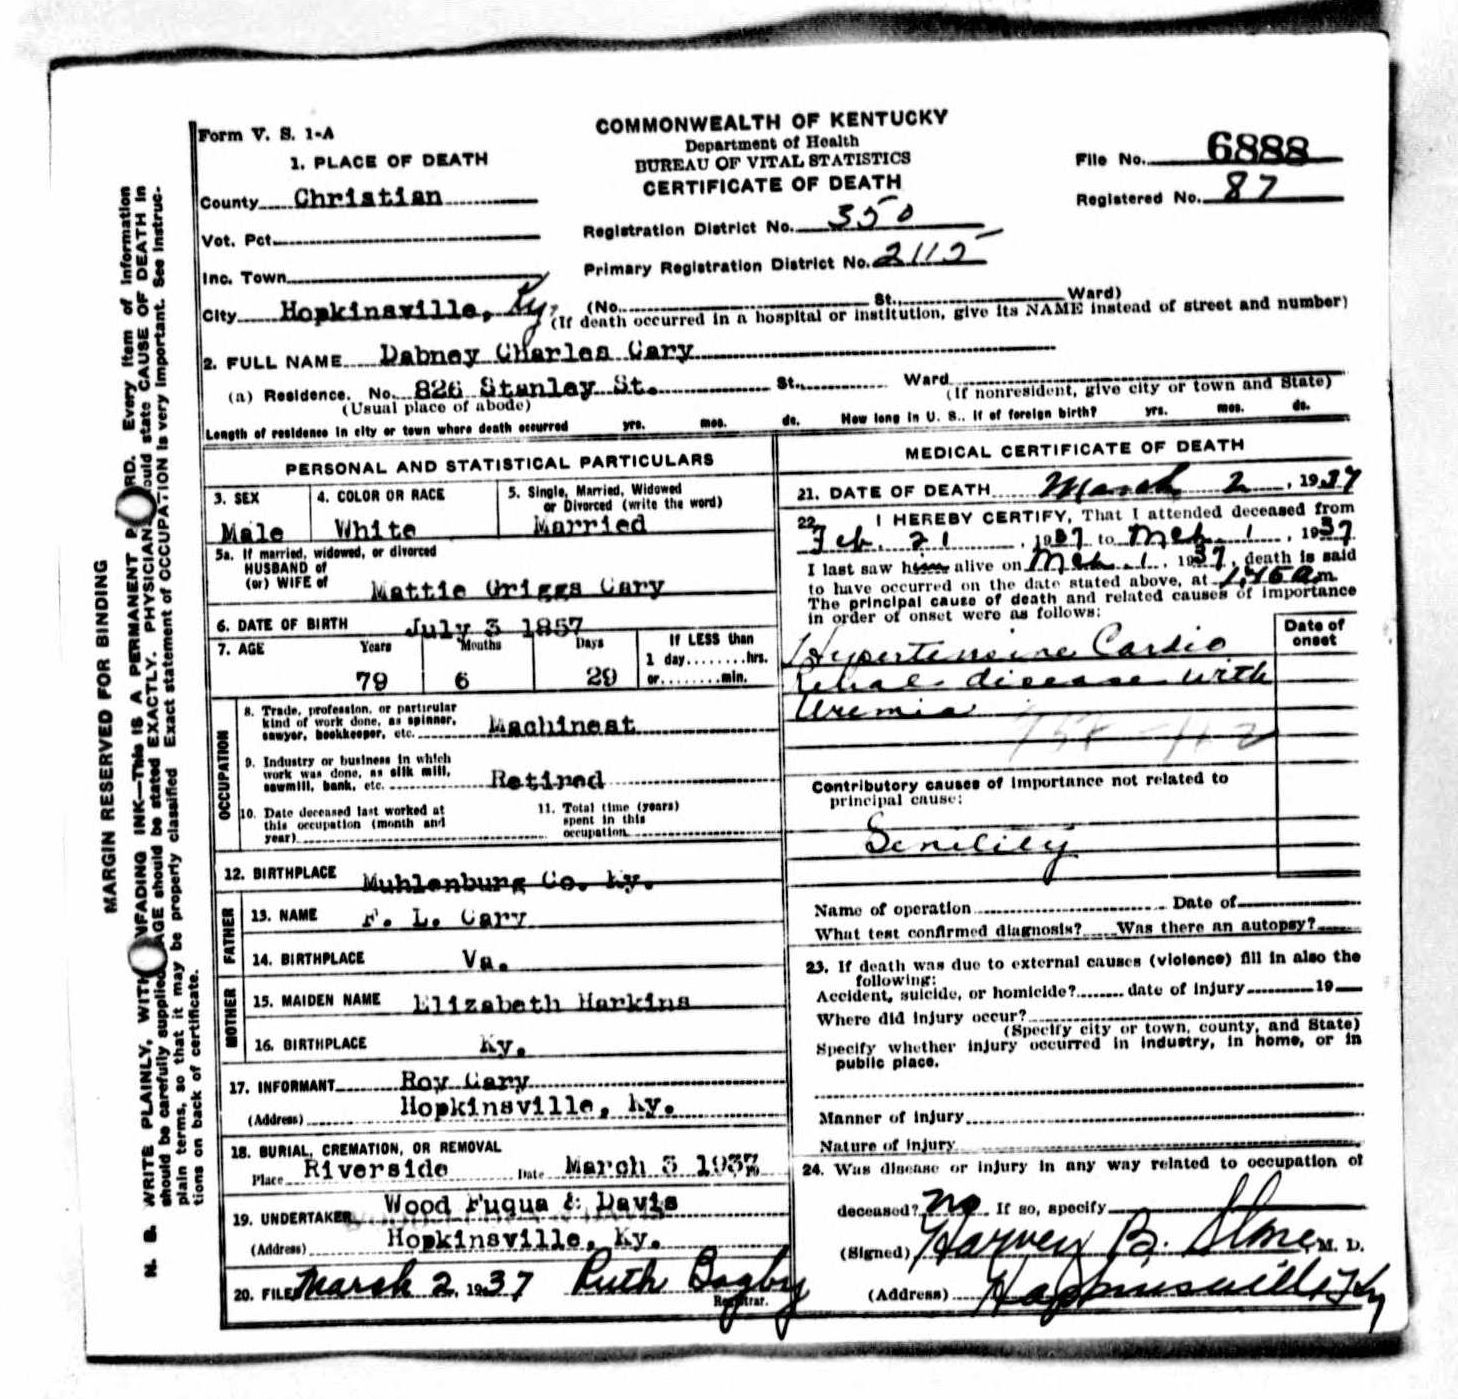 Form V. S. 1-A
COMMONWEALTH OF KENTUCKY
Department of Health
BUREAU OF VITAL STATISTICS
CERTIFICATE OF DEATH
File No. 6888
Registered No. 87
1. PLACE OF DEATH
County Christian
Vot. Pct.
Inc. Town
City Hopkinsville, Ky.
Registration District No. 350
Primary Registration District No. 2115
(No. St., Ward)
(If death occurred in a hospital or institution, give its NAME instead of street and number)
2. FULL NAME Dabney Charles Cary
(a) Residence. No. 826 Stanley St. St., Ward
(Usual place of abode)
(If nonresident, give city or town and State)
Length of residence in city or town where death occurred yrs. mos. ds. How long in U. S., if of foreign birth? yrs. mos. ds.
PERSONAL AND STATISTICAL PARTICULARS
3. SEX
Male
4. COLOR OR RACE
White
5. Single, Married, Widowed
or Divorced (write the word)
Married
5a. If married, widowed, or divorced
HUSBAND of
(or) WIFE of Mattie Griggs Cary
6. DATE OF BIRTH July 3 1857
7. AGE Years Months Days
79 6 29
If LESS than
1 day........hrs.
or........min.
OCCUPATION
8. Trade, profession, or particular
kind of work done, as spinner,
sawyer, bookkeeper, etc. Machinest
9. Industry or business in which
work was done, as silk mill,
sawmill, bank, etc. Retired
10. Date deceased last worked at
this occupation (month and
year)
11. Total time (years)
spent in this
occupation
12. BIRTHPLACE Muhlenburg Co. Ky.
FATHER
13. NAME F. L. Cary
14. BIRTHPLACE Va.
MOTHER
15. MAIDEN NAME Elizabeth Harkins
16. BIRTHPLACE Ky.
17. INFORMANT Roy Cary
(Address) Hopkinsville, Ky.
18. BURIAL, CREMATION, OR REMOVAL
Place Riverside Date March 3 1937
19. UNDERTAKER Wood Fuqua & Davis
(Address) Hopkinsville, Ky.
20. FILED March 2, 1937 Ruth Bagby
Registrar.
MEDICAL CERTIFICATE OF DEATH
21. DATE OF DEATH March 2, 1937
22. I HEREBY CERTIFY, That I attended deceased from
Feb. 21, 1937 to Mch. 1, 1937
I last saw him alive on Mch. 1, 1937, death is said
to have occurred on the date stated above, at 1,45 a m.
The principal cause of death and related causes of importance
in order of onset were as follows:
Date of
onset
Hypertensive Cardio
Renal disease with
Uremia
Contributory causes of importance not related to
principal cause:
Senility
Name of operation Date of
What test confirmed diagnosis? Was there an autopsy?
23. If death was due to external causes (violence) fill in also the
following:
Accident, suicide, or homicide? date of injury 19
Where did injury occur?
(Specify city or town, county, and State)
Specify whether injury occurred in industry, in home, or in
public place.
Manner of injury
Nature of injury
24. Was disease or injury in any way related to occupation of
deceased? no If so, specify
(Signed) Harvey B. Stone M. D.
(Address) Hopkinsville, Ky
MARGIN RESERVED FOR BINDING
N. B. WRITE PLAINLY, WITH UNFADING INK—This IS A PERMANENT RECORD. Every item of information
should be carefully supplied. AGE should be stated EXACTLY. PHYSICIANS should state CAUSE OF DEATH in
plain terms, so that it may be properly classified. Exact statement of OCCUPATION is very important. See instruc-
tions on back of certificate.